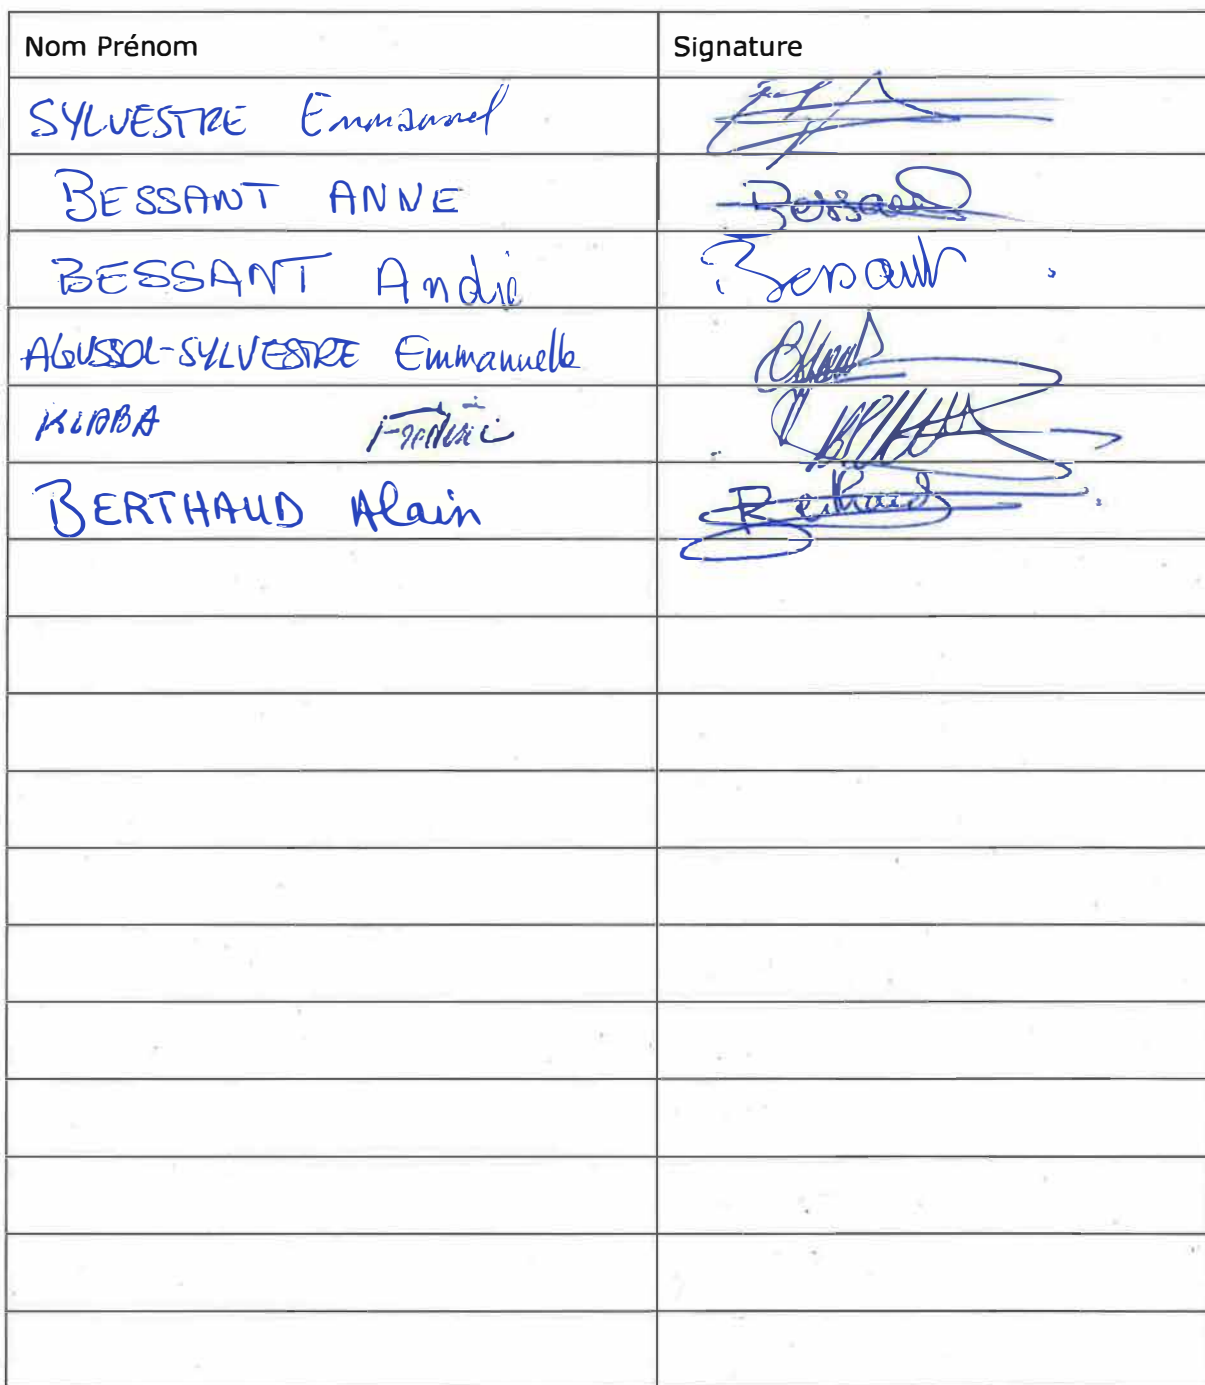 Nom Prénom Signature
SYLVESTRE Emmanuel
BESSANT ANNE Bessant
BESSANT André Bessant
AGUSSOL-SYLVESTRE Emmanuelle
KLABA Frédéric
BERTHAUD Alain Berthaud